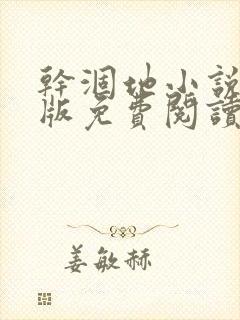 幹涸地小說
版免費閱讀
姜敏赫